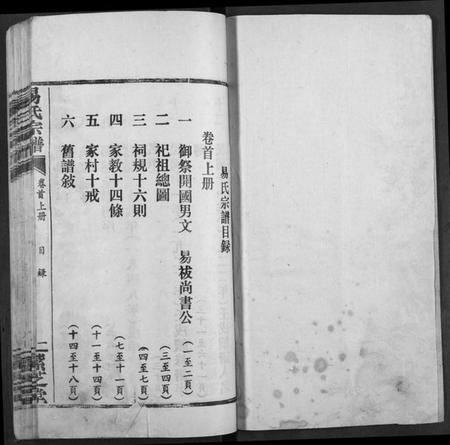 易氏宗譜目録
卷首上册
一 御祭開國男文 易祓尚書公 (一至二頁)
二 祀祖總圖 (三至四頁)
三 祠規十六則 (四至七頁)
四 家教十四條 (七至十一頁)
五 家村十戒 (十一至十四頁)
六 舊譜敍 (十四至十八頁)
易氏宗譜
卷首上册
目録